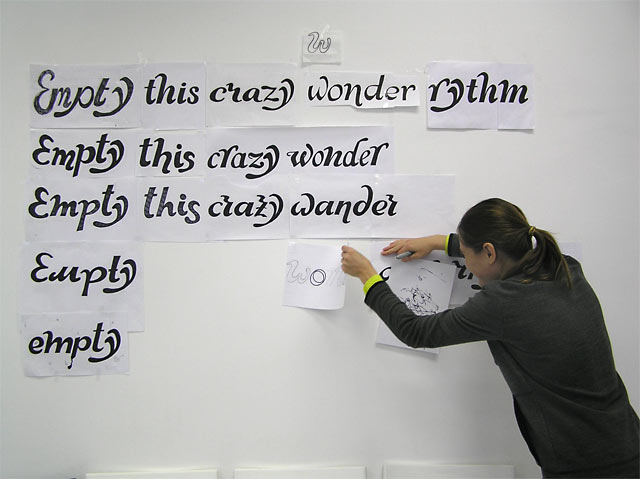 w
Empty this crazy wonder rythm
Empty this crazy wonder
Empty this crazy wander
Empty
won
empty